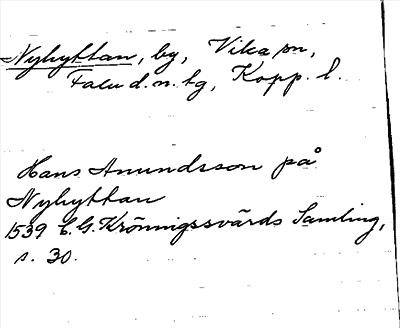 Nyhyttan, by, Vika sn,
Falu d. n. tg, Kopp. l.
Hans Anundsson på
Nyhyttan
1539 C. G. Krönnigssvärds Samling,
s. 30.